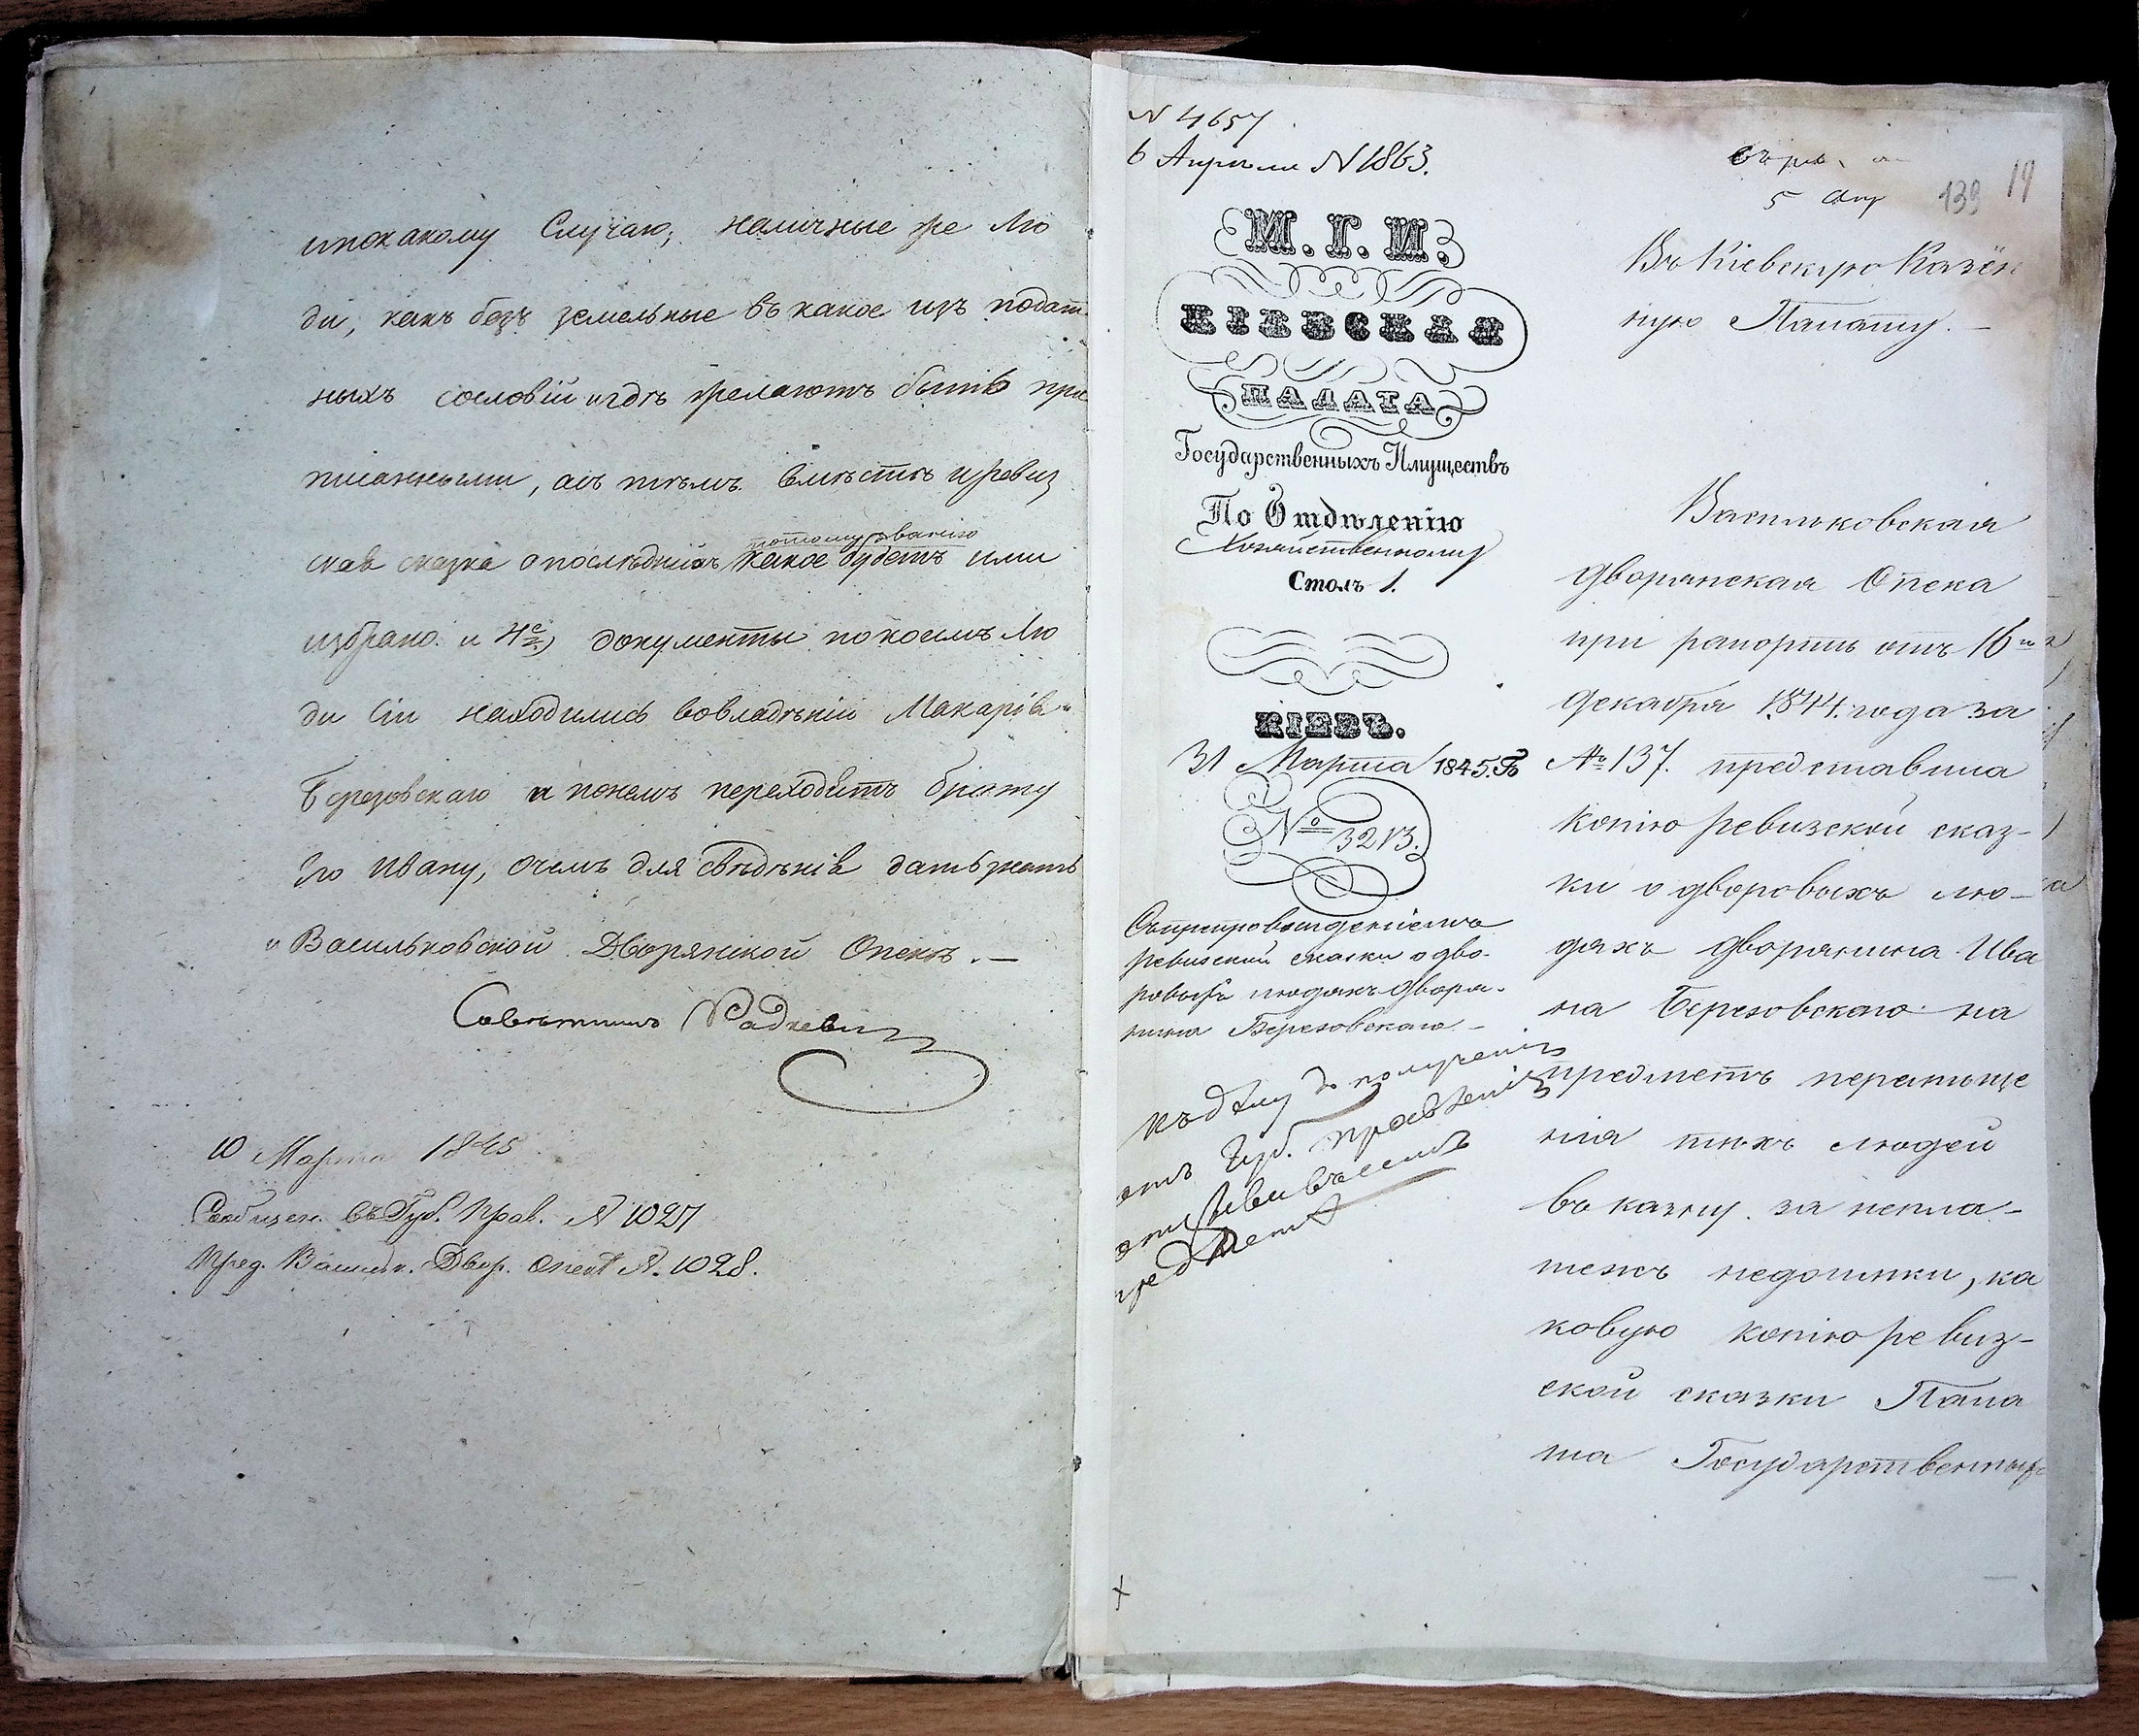 ипокакому Случаю; наличные же лю
ди, какъ безъ земельные въ какое изъ подат
ныхъ сословій игдѣ желаютъ быть при
писанными, асъ тѣмъ вмѣстѣ иревиз
ская сказка опослѣднихъ какое будетъ ими
избрано. и 4е) документы покоимъ лю
ди сіи находились вовладѣніи Макарія
Березовскаго и покемъ переходятъ брату
Его Ивану, очемъ для свѣдѣнія дать знать
и Васильковской Дворянской Опекѣ. —
Совѣтникъ Радкевич
10 Марта 1845
Сообщен. въ Губ. Прав. № 1027
Пред. Васильк. Двор. Опекѣ №. 1028.
N 4657
6 Апрѣля N 1863.
5 Апр
139 19
М. Г. И.
КІЕВСКАЯ
ПАЛАТА
Государственныхъ Имуществъ
По Отдѣленію
Хозяйственному
Столъ 1.
КІЕВЪ.
31 Марта 1845. Го
№ 3213.
Съпрепровожденіемъ
ревизской сказки о дво-
ровыхъ людяхъ дворя-
нина Березовскаго —
Къ дѣлу до полученія
отъ Губ. Правленія
предметѣ
Въ Кіевскую Казён
ную Палату. —
Васильковская
дворянская Опека
при рапортѣ отъ 16го
декабря 1844. года за
№ 137. представила
копію ревизской сказ-
ки о дворовыхъ лю-
дяхъ дворянина Ива
на Березовскаго на
предметъ перечисле
нія тѣхъ людей
въ казну. за непла-
тежъ недоимки, ка
ковую копію ревиз-
ской сказки Пала
та Государственныхъ